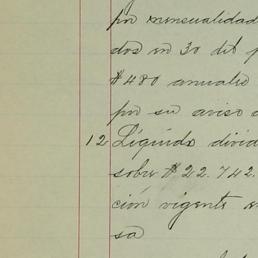 por mensualidad
dos en 30 del p
$480 anuales
por su aviso
12 Líquido divid
sobre $22.742.
ción vigente en
sa